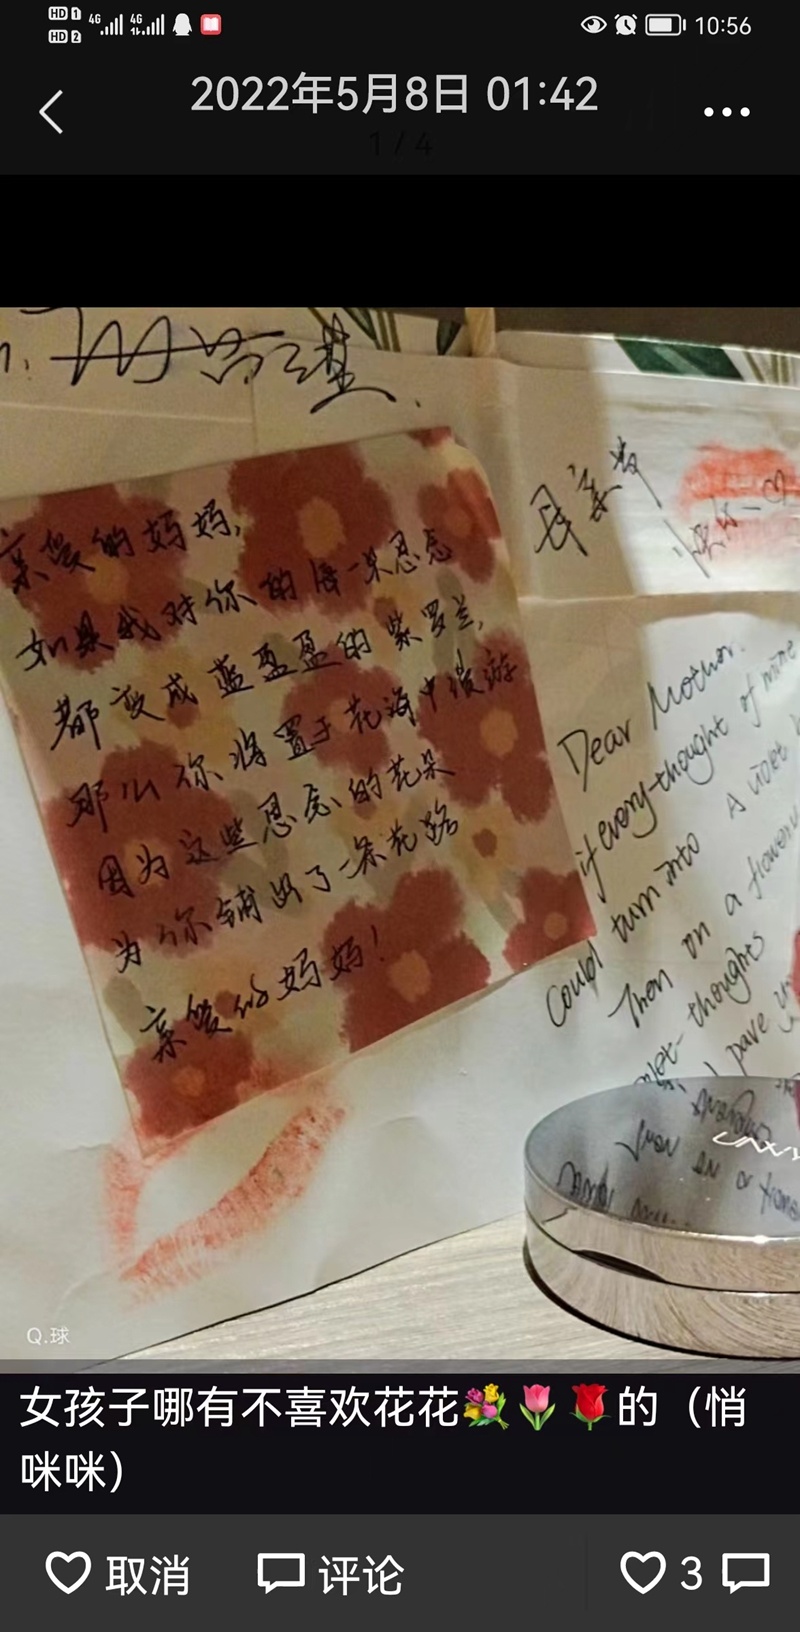 HD 1 4G 4G 10:56
HD 2
2022年5月8日 01:42
1 / 4
亲爱的妈妈,
如果我对你的每一朵思念
都变成蓝盈盈的紫罗兰,
那么你将置于花海中缓游
因为这些思念的花朵
为你铺出了一条花路
亲爱的妈妈!
母亲节
快乐~♡
Dear Mother.
if every thought of mine
could turn into A violet
Then on a flowery
violet-thoughts
pave
Q.球
女孩子哪有不喜欢花花💐🌷🌹的（悄
咪咪）
取消 评论 3